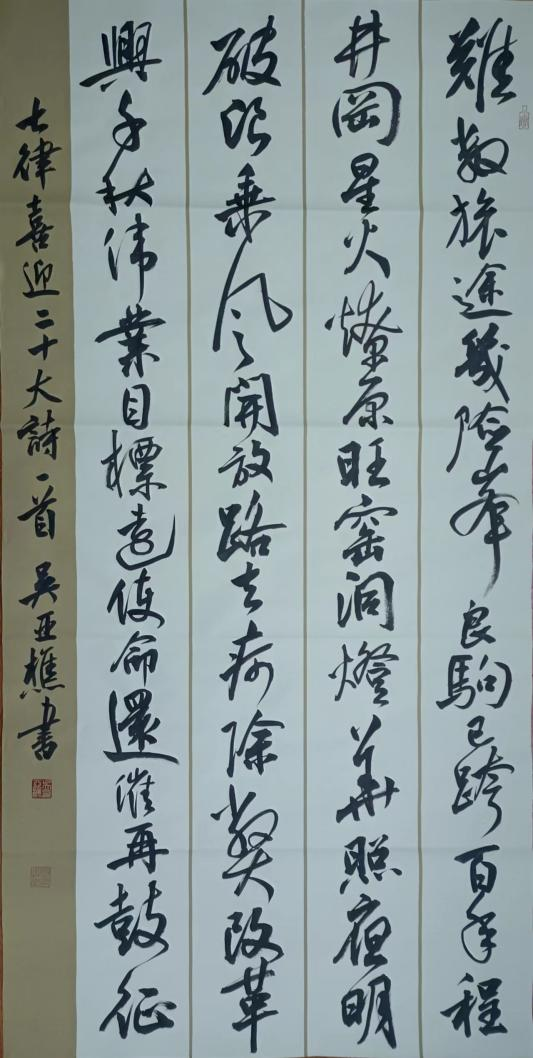 難數旅途幾險峯良駒已跨百年程
井岡星火燎原旺窑洞燈華照夜明
破浪乘風開放路去疴除弊改革
興千秋偉業目標遠使命還催再鼓征
七律喜迎二十大詩一首 吴亚樵書